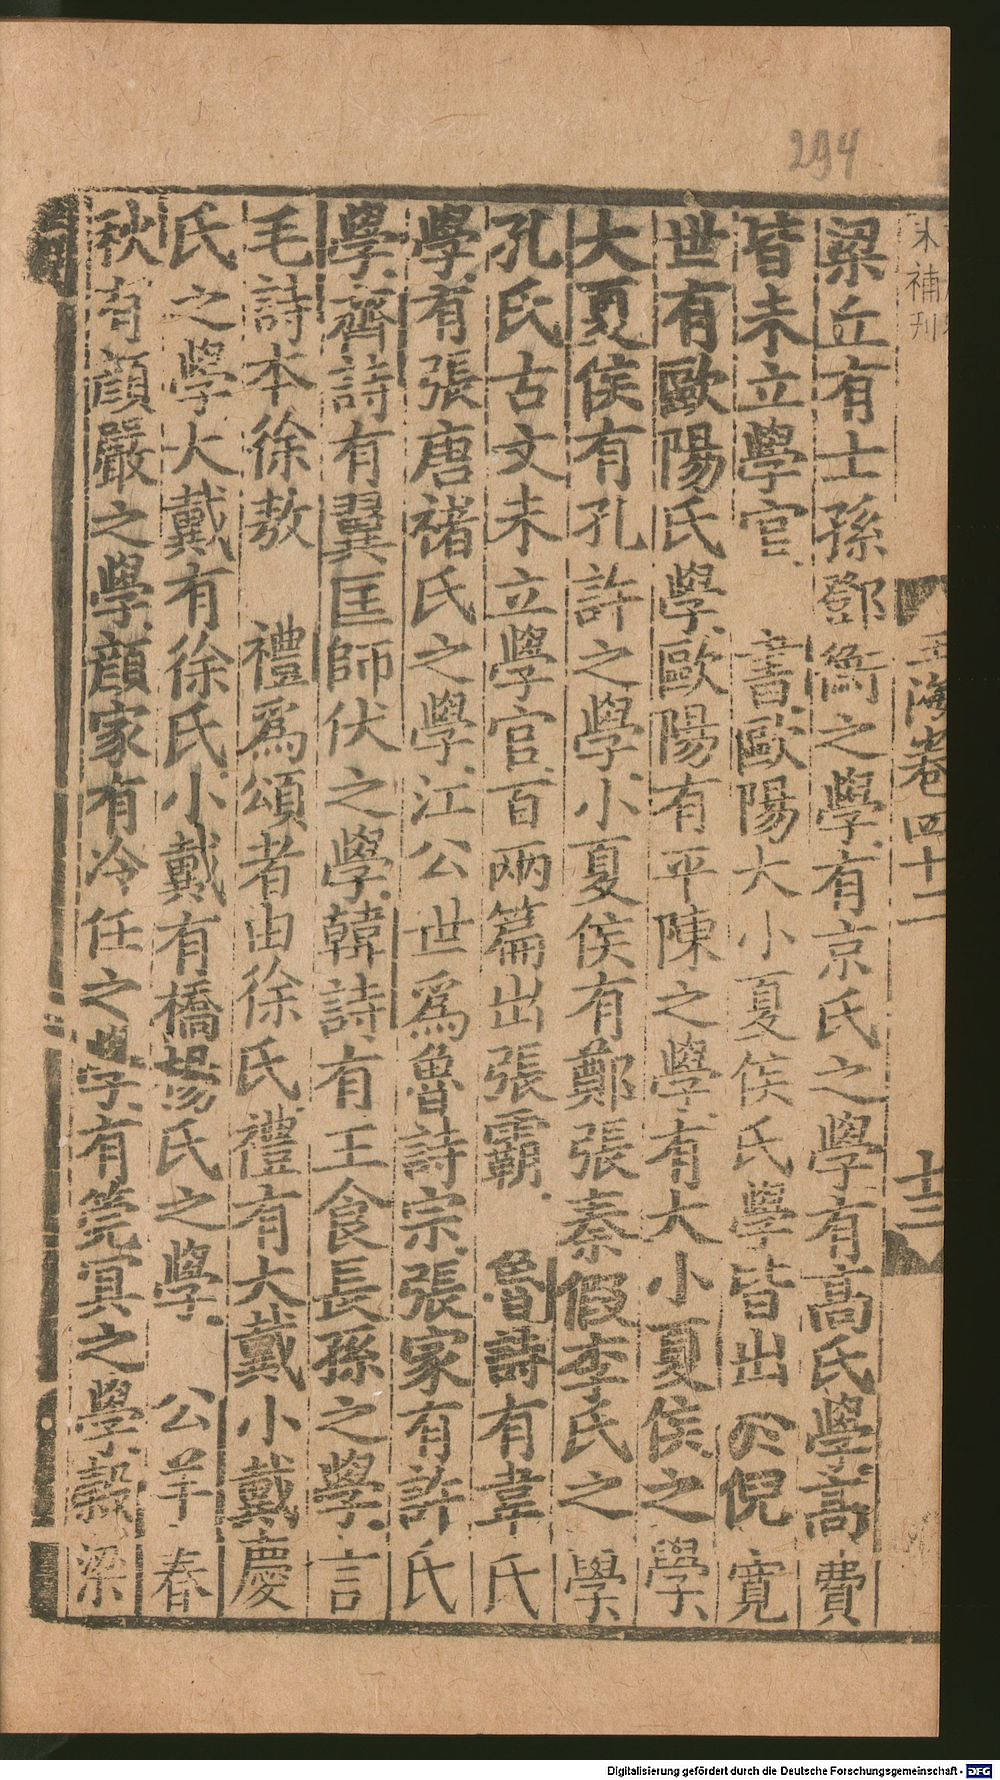 294
未補刊
玉海卷四十二
十三
梁丘有士孫鄧衡之學有京氏之學有高氏學高費
皆未立學官 書歐陽大小夏侯氏學皆出倪寬
世有歐陽氏學歐陽有平陳之學有大小夏侯之學
大夏侯有孔許之學小夏侯有鄭張秦假李氏之學
孔氏古文未立學官百兩篇出張霸 魯詩有韋氏
學有張唐褚氏之學江公世爲魯詩宗張家有許氏
學齊詩有翼匡師伏之學韓詩有王食長孫之學言
毛詩本徐敖 禮爲頌者由徐氏禮有大戴小戴慶
氏之學大戴有徐氏小戴有橋楊氏之學 公羊春
秋有顏嚴之學顏家有冷任之學有筦冥之學穀梁
Digitalisierung gefördert durch die Deutsche Forschungsgemeinschaft - DFG